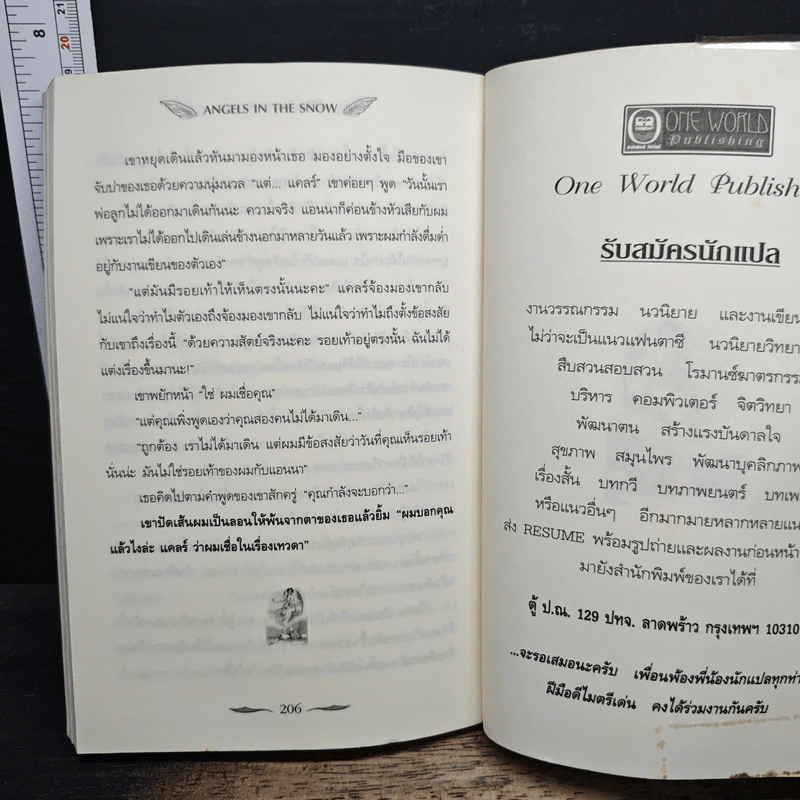 8
21
20
19
ANGELS IN THE SNOW
เขาหยุดเดินแล้วหันมามองหน้าเธอ มองอย่างตั้งใจ มือของเขา
จับบ่าของเธอด้วยความนุ่มนวล “แต่... แคลร์” เขาค่อยๆ พูด “วันนั้นเรา
พ่อลูกไม่ได้ออกมาเดินกันนะ ความจริง แอนนาก็ค่อนข้างหัวเสียกับผม
เพราะเราไม่ได้ออกไปเดินเล่นข้างนอกมาหลายวันแล้ว เพราะผมกำลังดื่มด่ำ
อยู่กับงานเขียนของตัวเอง”
“แต่มันมีรอยเท้าให้เห็นตรงนั้นนะคะ” แคลร์จ้องมองเขากลับ
ไม่แน่ใจว่าทำไมตัวเองถึงจ้องมองเขากลับ ไม่แน่ใจว่าทำไมถึงตั้งข้อสงสัย
กับเขาถึงเรื่องนี้ “ด้วยความสัตย์จริงนะคะ รอยเท้าอยู่ตรงนั้น ฉันไม่ได้
แต่งเรื่องขึ้นมานะ!”
เขาพยักหน้า “ใช่ ผมเชื่อคุณ”
“แต่คุณเพิ่งพูดเองว่าคุณสองคนไม่ได้มาเดิน...”
“ถูกต้อง เราไม่ได้มาเดิน แต่ผมมีข้อสงสัยว่าวันที่คุณเห็นรอยเท้า
นั่นน่ะ มันไม่ใช่รอยเท้าของผมกับแอนนา”
เธอคิดไปตามคำพูดของเขาสักครู่ “คุณกำลังจะบอกว่า...”
เขาปัดเส้นผมเป็นลอนให้พ้นจากตาของเธอแล้วยิ้ม “ผมบอกคุณ
แล้วไงล่ะ แคลร์ ว่าผมเชื่อในเรื่องเทวดา”
206
ONE WORLD
Publishing
One World Publish
รับสมัครนักแปล
งานวรรณกรรม นวนิยาย และงานเขียน
ไม่ว่าจะเป็นแนวแฟนตาซี นวนิยายวิทยา
สืบสวนสอบสวน โรมานซ์ฆาตกรรม
บริหาร คอมพิวเตอร์ จิตวิทยา
พัฒนาตน สร้างแรงบันดาลใจ
สุขภาพ สมุนไพร พัฒนาบุคลิกภาพ
เรื่องสั้น บทกวี บทภาพยนตร์ บทเพ
หรือแนวอื่นๆ อีกมากมายหลากหลายแน
ส่ง RESUME พร้อมรูปถ่ายและผลงานก่อนหน้า
มายังสำนักพิมพ์ของเราได้ที่
ตู้ ป.ณ. 129 ปทจ. ลาดพร้าว กรุงเทพฯ 10310
...จะรอเสมอนะครับ เพื่อนพ้องพี่น้องนักแปลทุกท่า
ฝีมือดีไมตรีเด่น คงได้ร่วมงานกันครับ